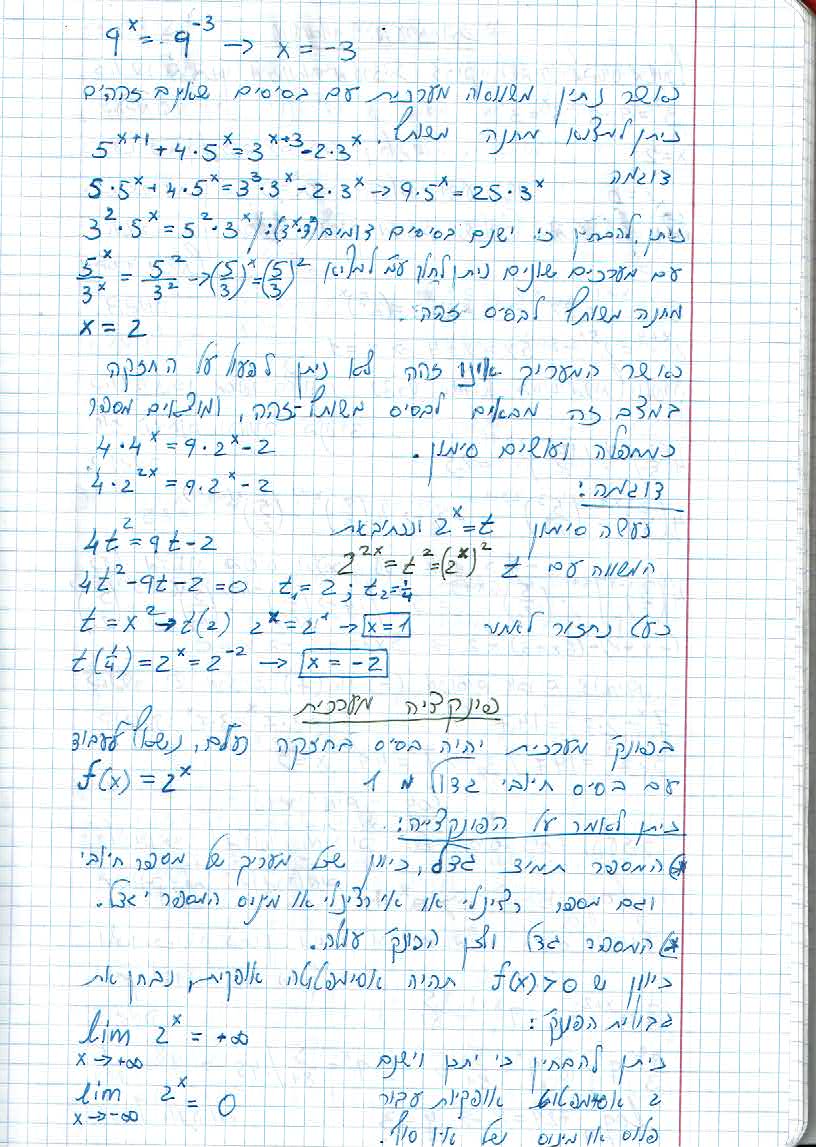 9^x = 9^-3 → x = -3
כאשר נתין משוואה מערכית עם בסיסים שאינם זהים
ניתן למצוא מתנה משותף.
5^x+1 + 4·5^x = 3^x+3 - 2·3^x
דוגמה
5·5^x + 4·5^x = 3^3·3^x - 2·3^x → 9·5^x = 25·3^x
3^2·5^x = 5^2·3^x /:(3^x·3^2) ניתן להבחין כי ישנם בסיסים דומים
5^x/3^x = 5^2/3^2 → (5/3)^x = (5/3)^2 עם מערכים שונים ניתן לחלק ע"מ להביא
מתנה משותף לבסיס זהה.
x = 2
כאשר המעריך אינו זהה לא ניתן לפעול על החזקה
במצב זה מביאים לבסיס משותף-זהה, ומוצאים מספר
4·4^x = 9·2^x - 2 כמכפלה ועושים סימון.
4·2^2x = 9·2^x - 2
דוגמה:
נעשה סימון 2^x = t ונכתיב את
4t^2 = 9t - 2
המשווה עם t 2^2x = t^2 = (2^x)^2
4t^2 - 9t - 2 = 0 t1 = 2 ; t2 = 1/4
t = x^2 → t(2) 2^x = 2^1 → x = 1 כעת נחזור לאתר
t(1/4) = 2^x = 2^-2 → x = -2
פונקציה מערכית
בפונק' מערכית יהיה בסיס בחזקה נעלם, נשאף לעבוד
עם בסיס חיובי גדול מ 1 f(x) = 2^x
ניתן לאמר על הפונקצייה:
*) המספר תמיד גדל, כיוון שכל מעריך של מספר חיובי
וגם מספר רציונלי או אי רציונלי או מינוס המספר יגדל.
*) המספר גדל ולכן הפונק' עולה.
כיוון ש f(x) > 0 תהיה אסימפטוטה אופקית, נבחן את
גבולית הפונק':
lim 2^x = +∞
x → +∞
ניתן להבחין כי יתכן וישנם
lim 2^x = 0
x → -∞
2 אסימפטוטות אופקיות עבור
פלוס או מינוס של אין סוף.